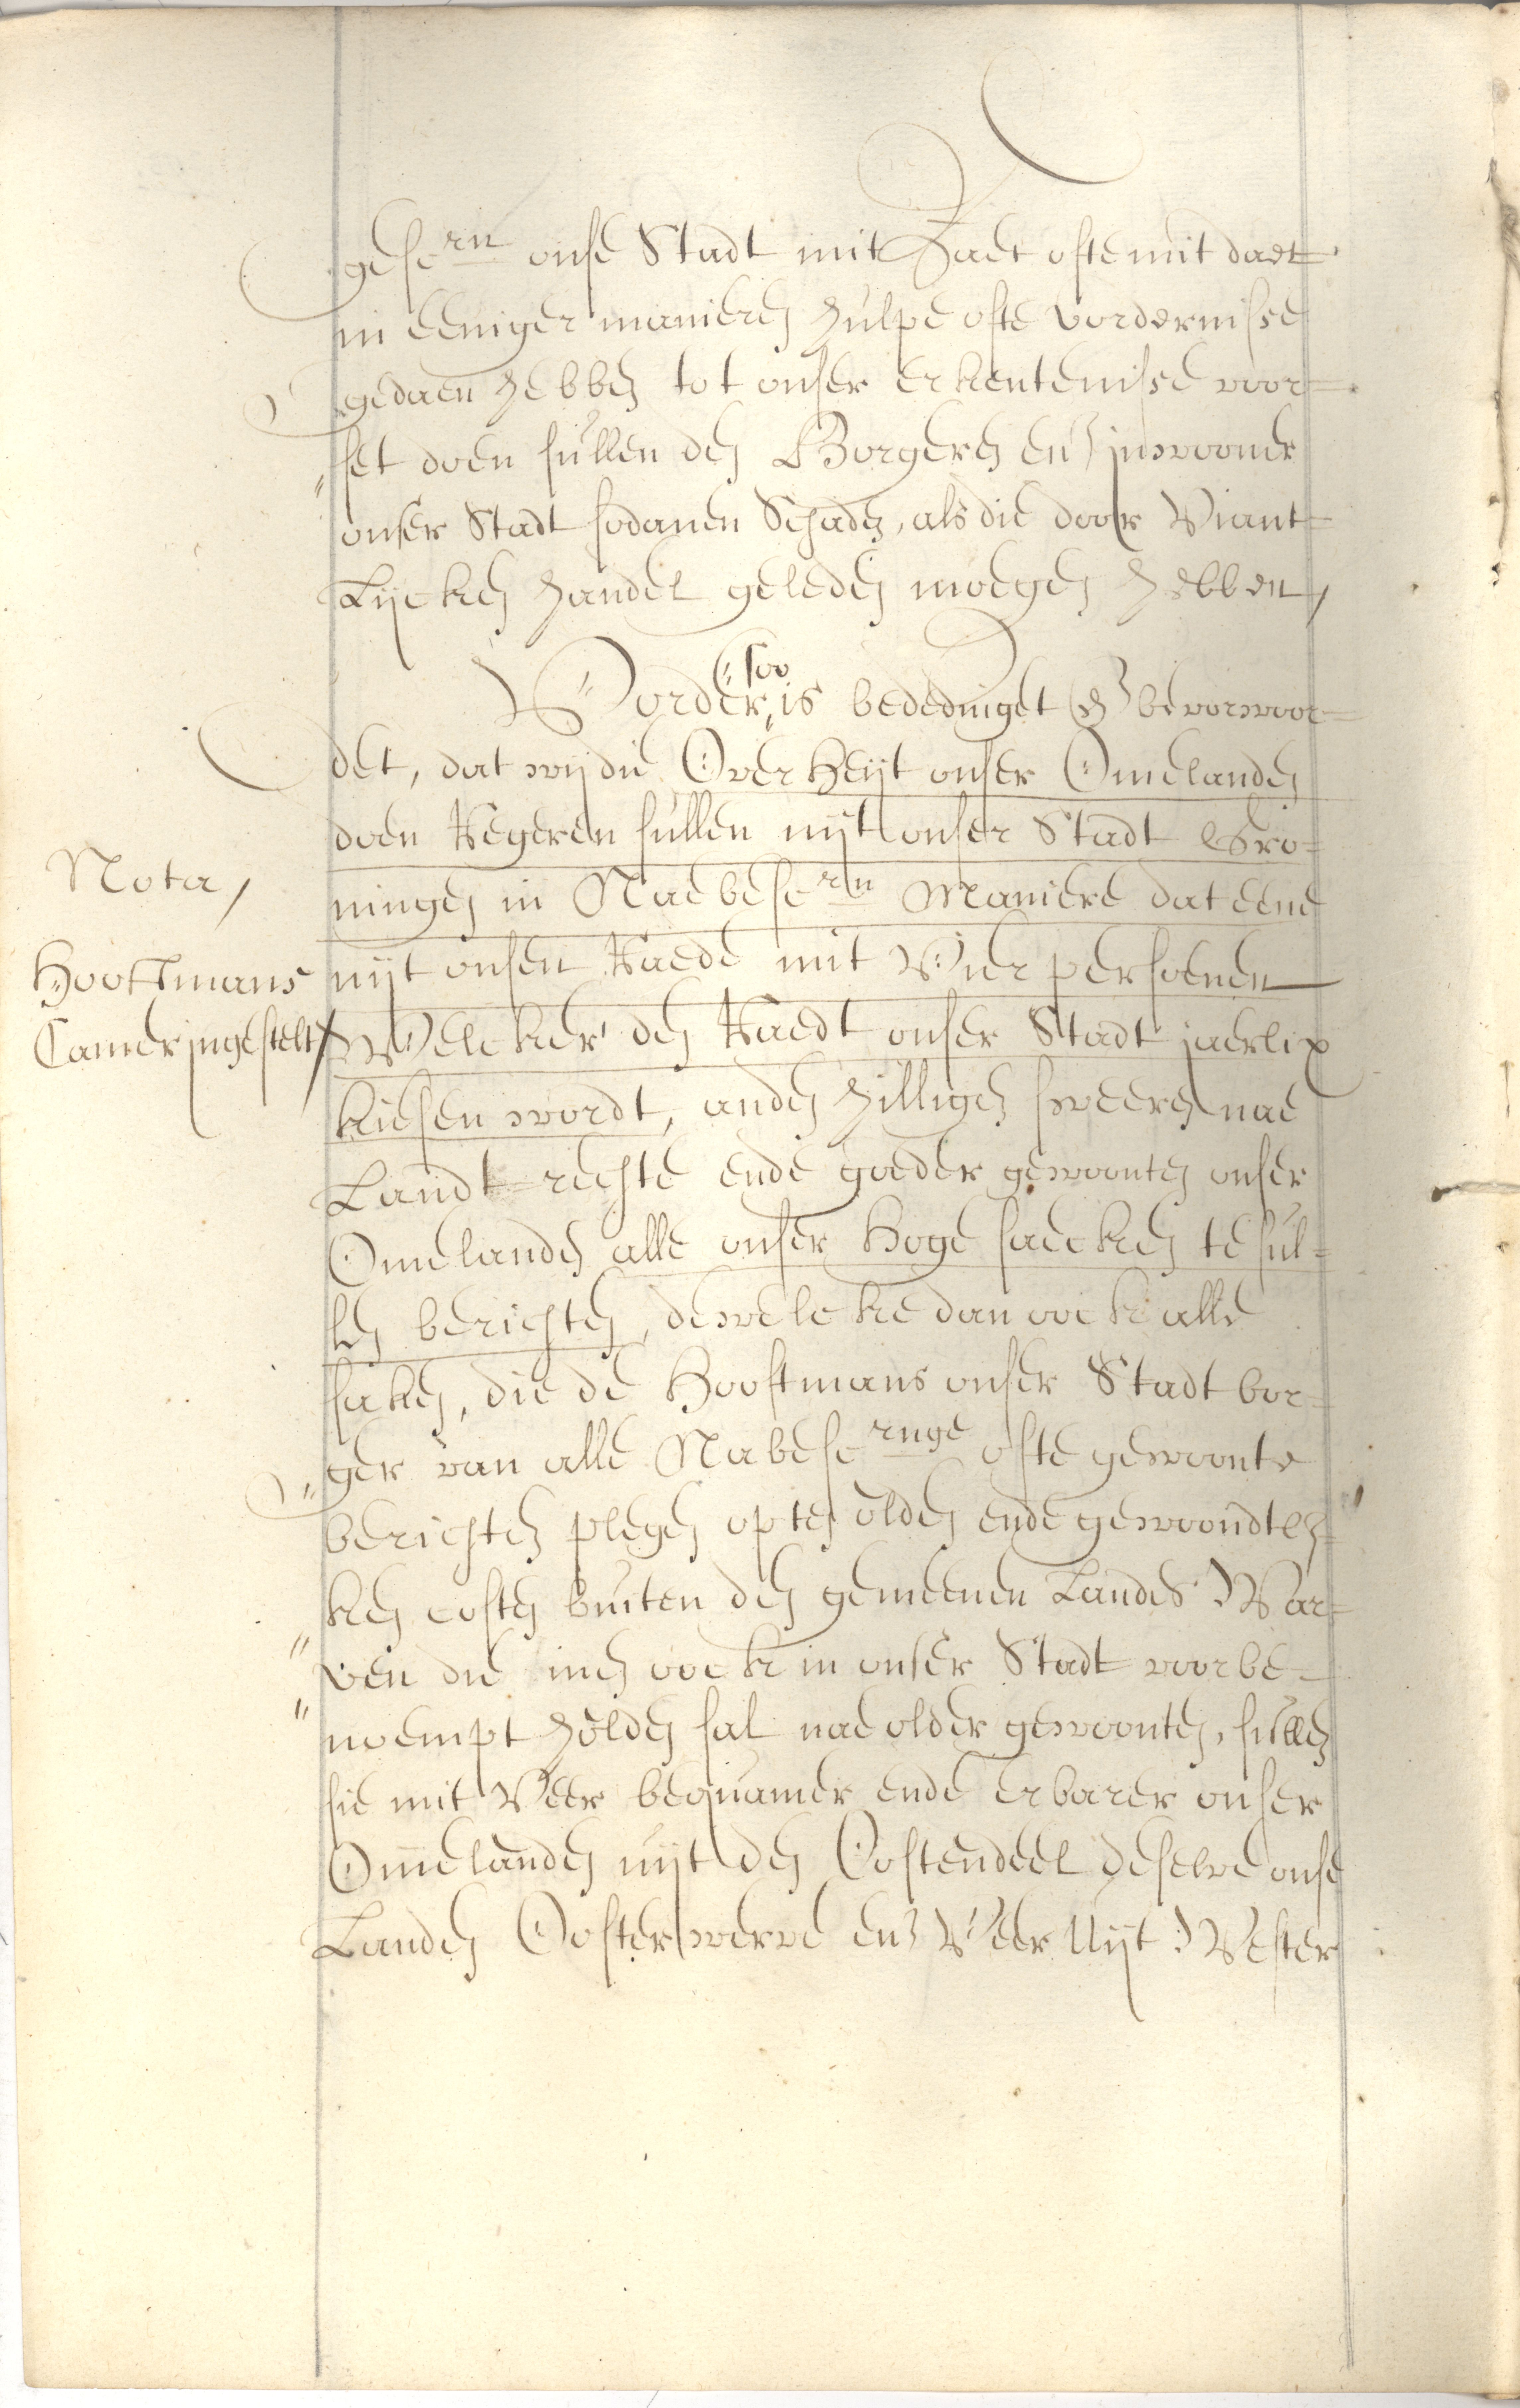 gescrn onse Stadt mit Raet ofte mit daet
in eeniger manieren hulpe ofte vordernisse
gedaen hebben tot onser erkentenisse voor-
set doen sullen den Borgeren en inwooner
onser Stadt sodanen Schaden, als die door Viant-
Lijcken handel geleden moegen hebben,
Vorder soo is bededinget en bevorwoor-
det, dat wij die Overheijt onser Omelanden
doen Regeren sullen uijt onser Stadt Gro-
Nota,
ningen in Naebescrn Maniere dat eene
Hooftmans
uijt onsen Raede mit Vier persoenen
Camer ingestelt
Welcker den Raedt onser Stadt jaerlix
kiesen wordt, an den hilligen sweeren nae
Landt-rechte ende goeder gewoonten onser
Omelanden alle onser hoge saecken te sul-
len berichten, dewelcke dan oock alle
saken, die de Hooftmans onser Stadt bor-
ger van alle Nabescrnge ofte gewoonte
berichten plegen op ten olden ende gewoondtly-
ken costen buiten den gemeenen Landes War-
ven die men oock in onser Stadt voorbe-
noempt holden sal nae older gewoonten, sullen
sie mit Veer bequamer ende erbarer onser
Omelanden uijt den Oostendeel deselve onse
Landen Oosterwerve en Veer Uijt Wester